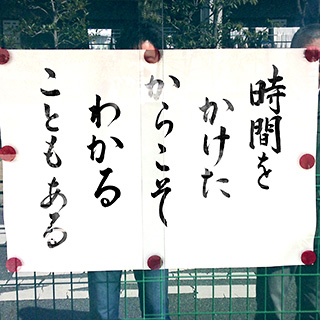 時間を
かけた
からこそ
わかる
こともある